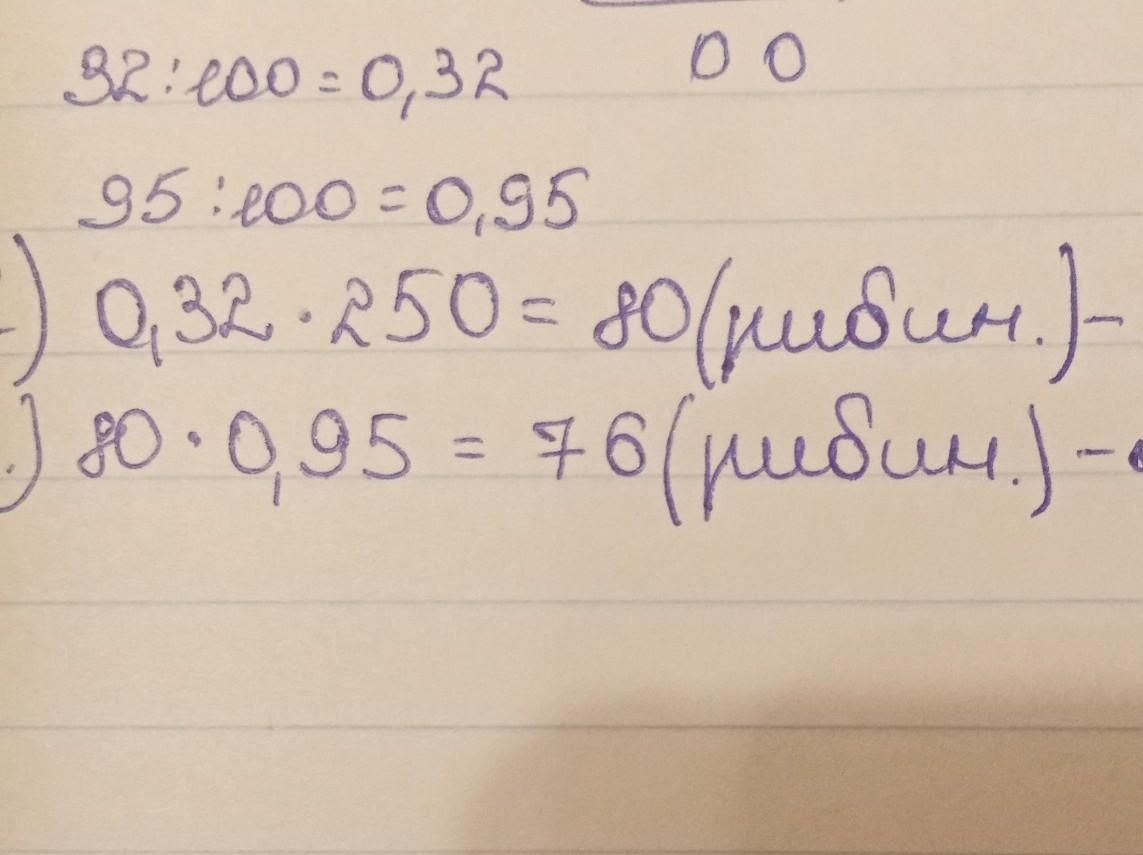 0 0
32:100=0,32
95:100=0,95
) 0,32·250=80(рибин.)-
.) 80·0,95=76(рибин.)-